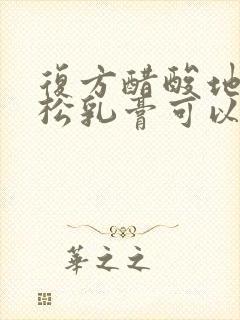 復方醋酸地
松乳膏可以
華之之